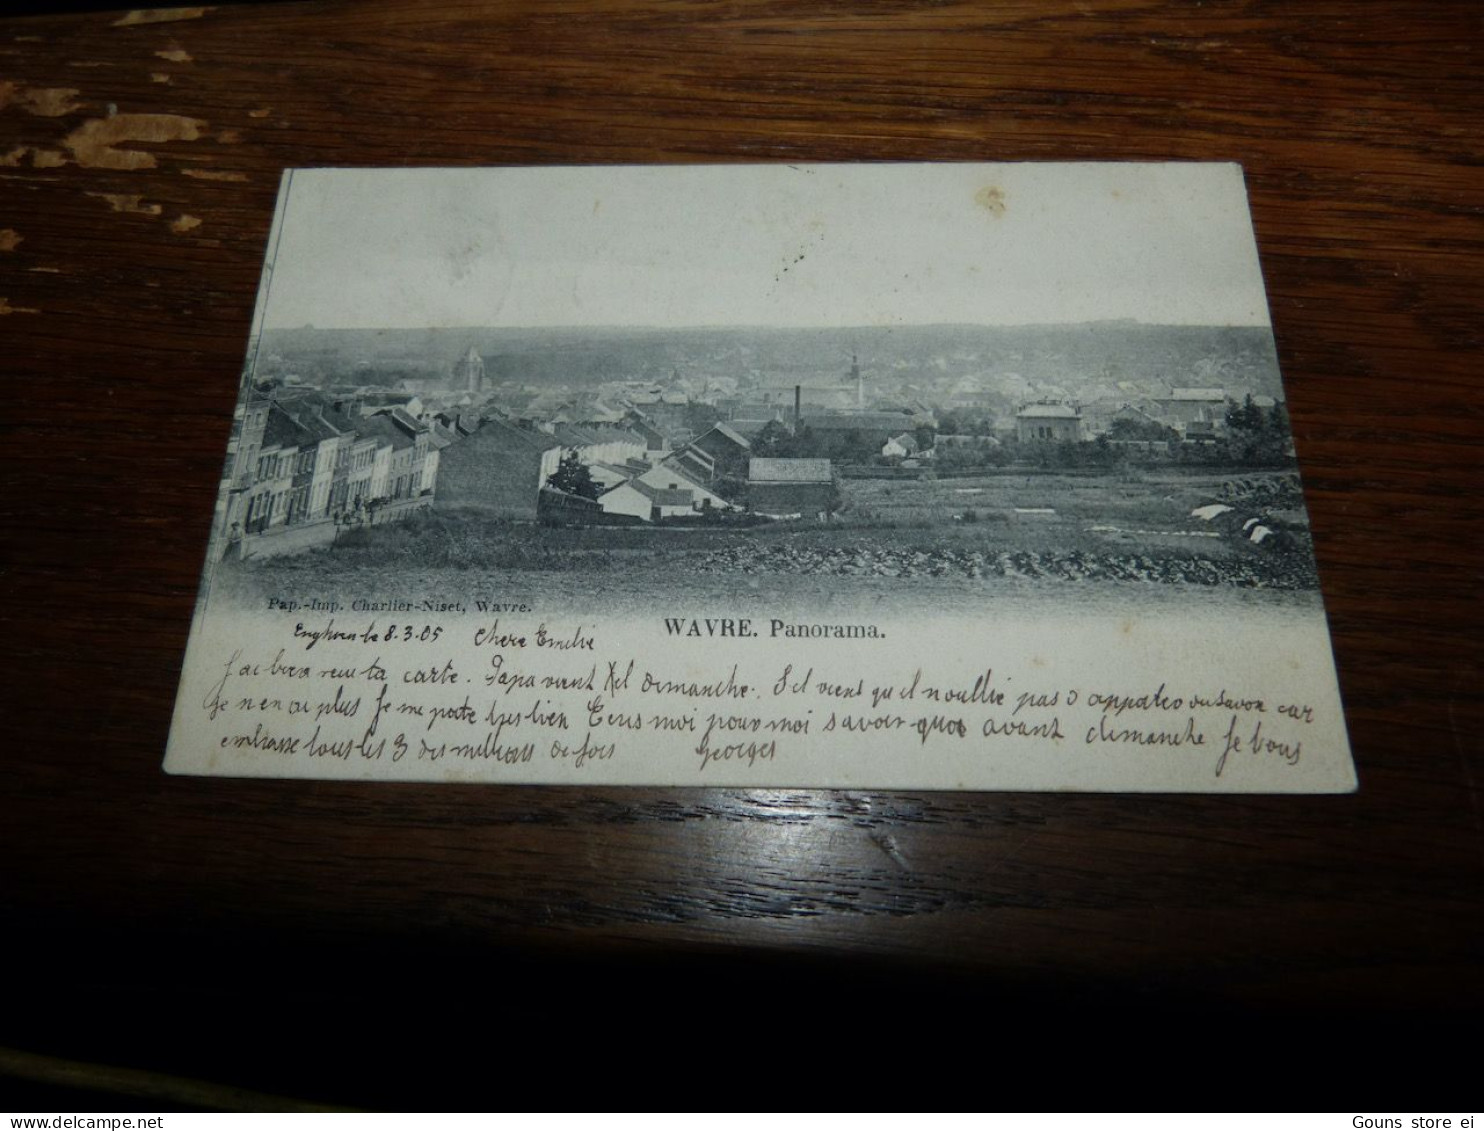 Pap.-Imp. Charlier-Niset, Wavre.
WAVRE. Panorama.
Enghien le 8.3.05 Chère Emilie
J'ai bien reçu ta carte. Papa vient til dimanche. S'il vient qu'il n'oullie pas d'appateo du savon car
je n'en ai plus Je me porte très bien Ecris moi pour moi savoir quoi avant dimanche Je vous
embrasse tous les 3 des millions de fois Georges
Gouns store ei